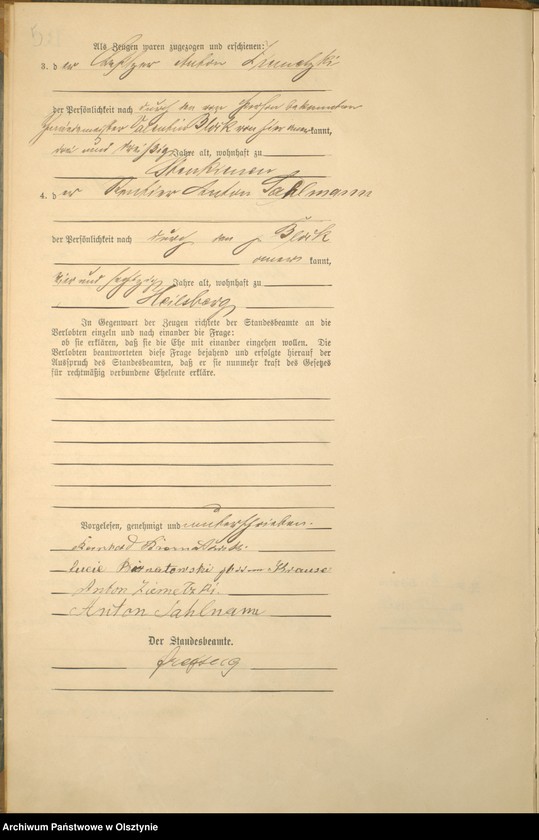 Als Zeugen waren zugezogen und erschienen:
3. der Besitzer Anton Ziemetzki
der Persönlichkeit nach durch den von Person bekannten
Valentin Block von hier anerkannt,
drei und dreißig Jahre alt, wohnhaft zu
4. der Rentier Anton Sahlmann
der Persönlichkeit nach durch den p. Block
anerkannt,
vier und sechzig Jahre alt, wohnhaft zu
Heilsberg
In Gegenwart der Zeugen richtete der Standesbeamte an die
Verlobten einzeln und nach einander die Frage:
ob sie erklären, daß sie die Ehe mit einander eingehen wollen. Die
Verlobten beantworteten diese Frage bejahend und erfolgte hierauf der
Ausspruch des Standesbeamten, daß er sie nunmehr kraft des Gesetzes
für rechtmäßig verbundene Eheleute erkläre.
Vorgelesen, genehmigt und unterschrieben.
Lucie geborene Krause
Anton Ziemetzki.
Anton Sahlmann
Der Standesbeamte.
Archiwum Państwowe w Olsztynie